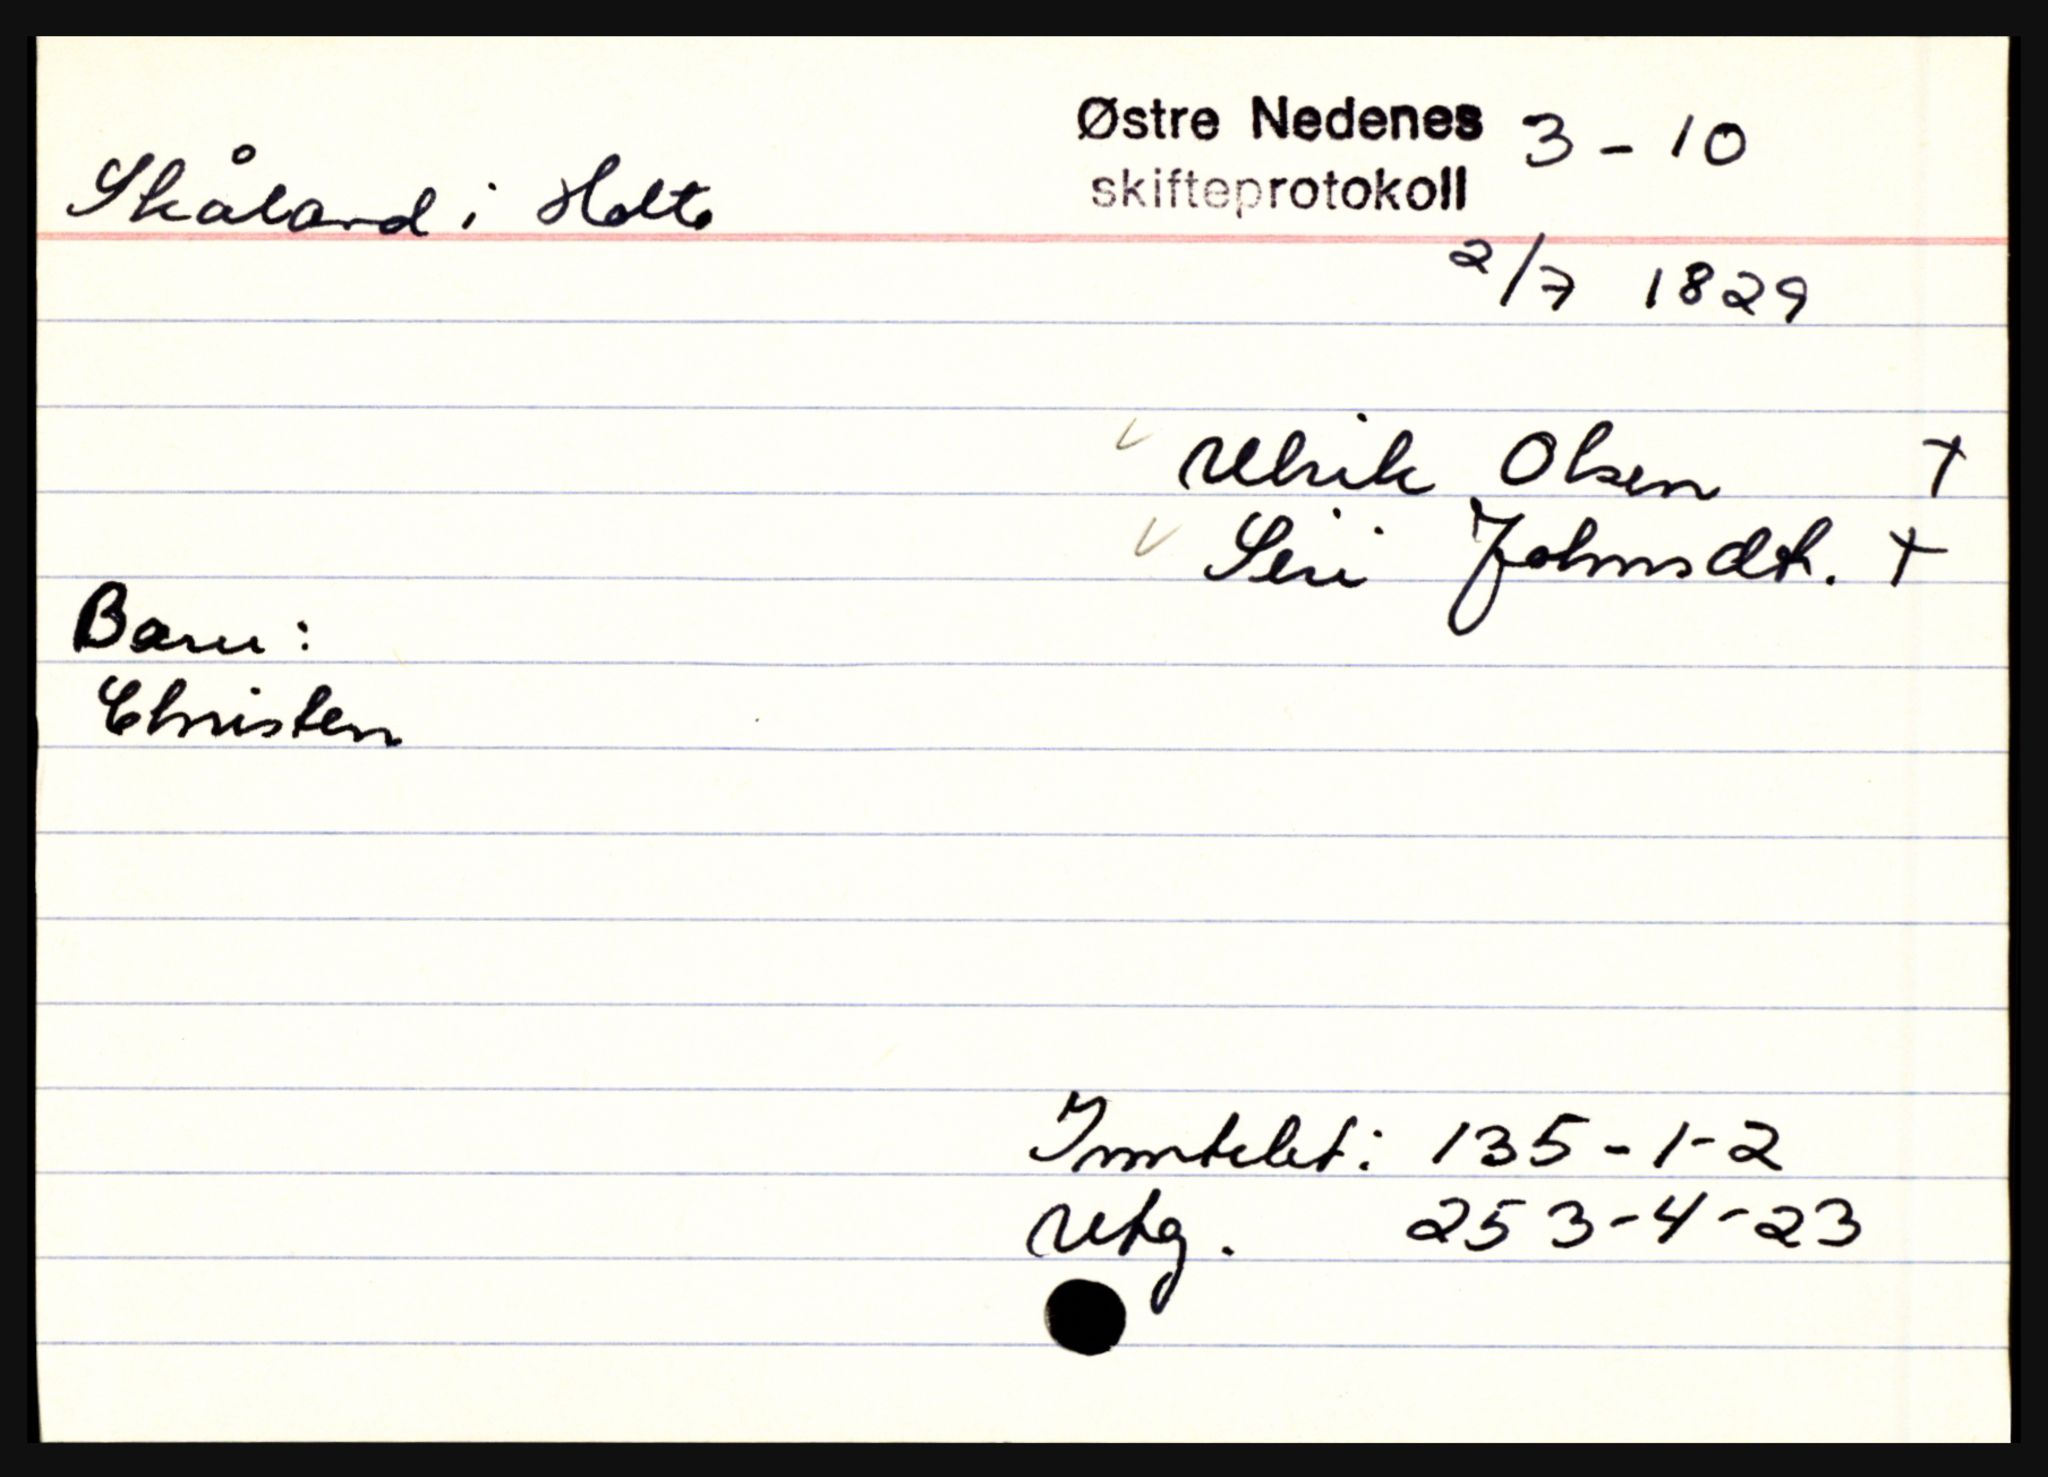 Østre Nedenes 3 - 10
skifteprotokoll
Skåland i Holt.
2/7 1829
✓ Ulrik Olsen †
✓ Siri Johnsdt. †
Barn:
Christen
Inntekt: 135-1-2
Utg. 253-4-23